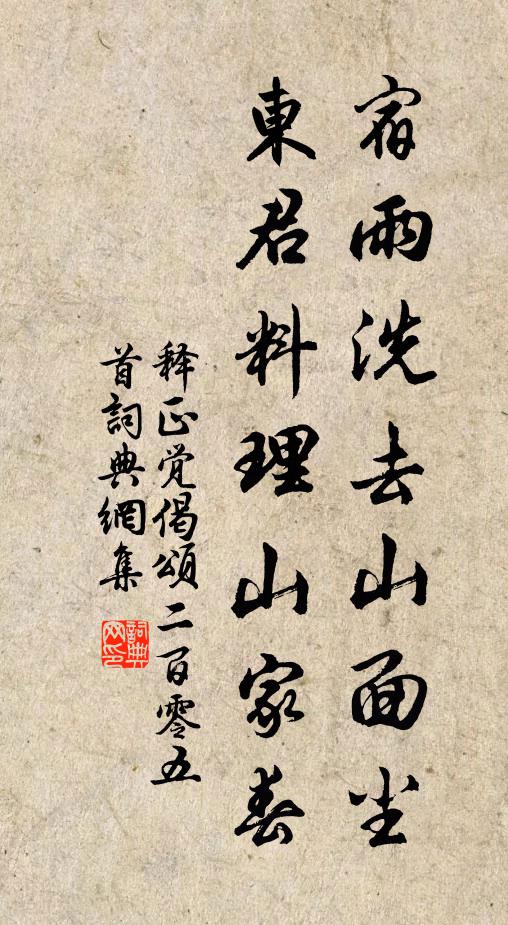 宿雨洗去山面尘
東君料理山家春
释正觉偈頌二百零五
首詞典網集
詞典
网印